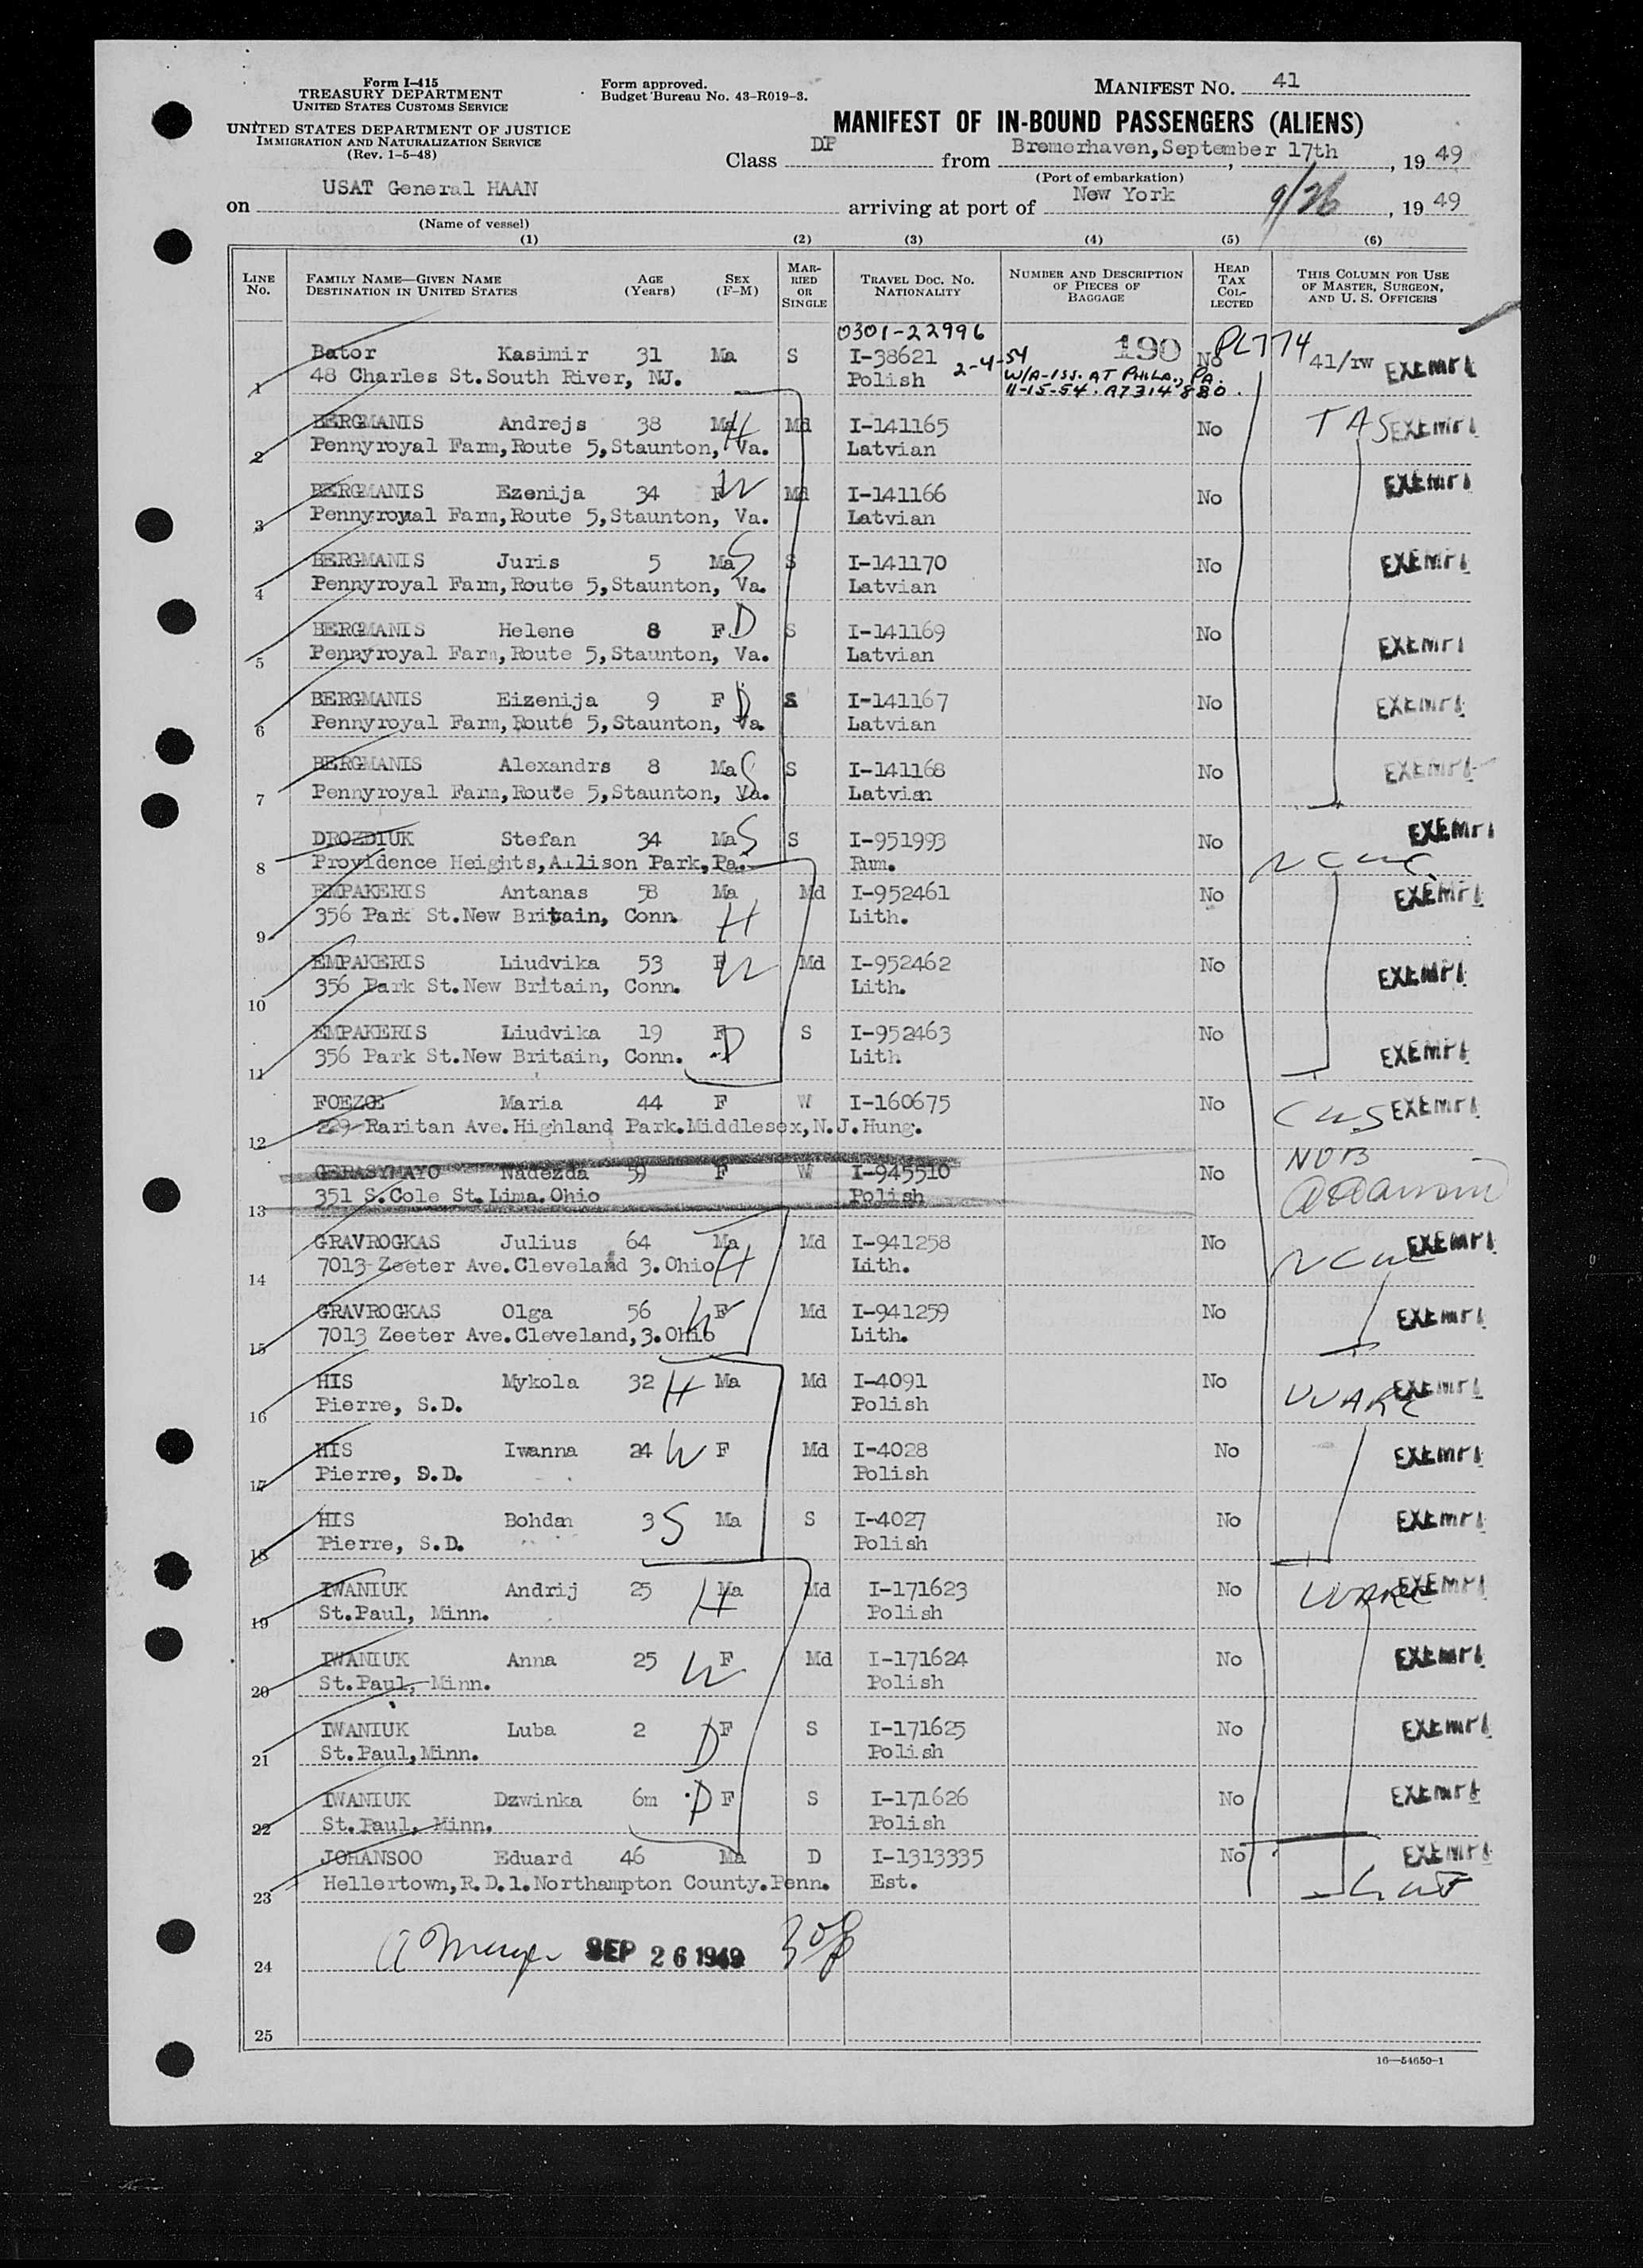 Form I-415
TREASURY DEPARTMENT
UNITED STATES CUSTOMS SERVICE
UNITED STATES DEPARTMENT OF JUSTICE
IMMIGRATION AND NATURALIZATION SERVICE
(Rev. 1-5-48)
Form approved.
Budget Bureau No. 43-R019-3.
MANIFEST No. 41
MANIFEST OF IN-BOUND PASSENGERS (ALIENS)
Class DP from Bremerhaven, September 17th, 19 49
(Port of embarkation)
on USAT General HAAN arriving at port of New York 9/26, 19 49
(Name of vessel)
(1) (2) (3) (4) (5) (6)
LINE No. FAMILY NAME—GIVEN NAME DESTINATION IN UNITED STATES AGE (Years) SEX (F-M) MARRIED OR SINGLE TRAVEL DOC. NO. NATIONALITY NUMBER AND DESCRIPTION OF PIECES OF BAGGAGE HEAD TAX COLLECTED THIS COLUMN FOR USE OF MASTER, SURGEON, AND U. S. OFFICERS
0301-22996
1 Bator Kasimir 31 Ma S I-38621 2-4-54 190 No PL774 41/rw EXEMPT
48 Charles St. South River, NJ. Polish W/A-ISS. AT PHILA., PA.
11-15-54. A7314880.
2 BERGMANIS Andrejs 38 Ma H Md I-141165 No TAS EXEMPT
Pennyroyal Farm, Route 5, Staunton, Va. Latvian
3 BERGMANIS Ezenija 34 F W Md I-141166 No EXEMPT
Pennyroyal Farm, Route 5, Staunton, Va. Latvian
4 BERGMANIS Juris 5 Ma S S I-141170 No EXEMPT
Pennyroyal Farm, Route 5, Staunton, Va. Latvian
5 BERGMANIS Helene 8 F D S I-141169 No EXEMPT
Pennyroyal Farm, Route 5, Staunton, Va. Latvian
6 BERGMANIS Eizenija 9 F D S I-141167 No EXEMPT
Pennyroyal Farm, Route 5, Staunton, Va. Latvian
7 BERGMANIS Alexandrs 8 Ma S S I-141168 No EXEMPT
Pennyroyal Farm, Route 5, Staunton, Va. Latvian
8 DROZDIUK Stefan 34 Ma S S I-951993 No EXEMPT
Providence Heights, Allison Park, Pa. Rum. NCWC
9 EMPAKERIS Antanas 58 Ma H Md I-952461 No EXEMPT
356 Park St. New Britain, Conn. Lith.
10 EMPAKERIS Liudvika 53 F W Md I-952462 No EXEMPT
356 Park St. New Britain, Conn. Lith.
11 EMPAKERIS Liudvika 19 F D S I-952463 No EXEMPT
356 Park St. New Britain, Conn. Lith
12 FOEZOE Maria 44 F W I-160675 No CWS EXEMPT
229 Raritan Ave. Highland Park. Middlesex, N.J. Hung.
13 GERASYMAYO Nadezda 59 F W I-945510 No NOB
351 S. Cole St. Lima. Ohio Polish
14 GRAVROGKAS Julius 64 Ma H Md I-941258 No NCWC EXEMPT
7013 Zeeter Ave. Cleveland 3. Ohio Lith.
15 GRAVROGKAS Olga 56 W F Md I-941259 No EXEMPT
7013 Zeeter Ave. Cleveland, 3. Ohio Lith.
16 HIS Mykola 32 H Ma Md I-4091 No UUARC EXEMPT
Pierre, S.D. Polish
17 HIS Iwanna 24 W F Md I-4028 No EXEMPT
Pierre, S.D. Polish
18 HIS Bohdan 3 S Ma S I-4027 No EXEMPT
Pierre, S.D. Polish
19 IWANIUK Andrij 25 H Ma Md I-171623 No UUARC EXEMPT
St. Paul, Minn. Polish
20 IWANIUK Anna 25 W F Md I-171624 No EXEMPT
St. Paul, Minn. Polish
21 IWANIUK Luba 2 D F S I-171625 No EXEMPT
St. Paul, Minn. Polish
22 IWANIUK Dzwinka 6m D F S I-171626 No EXEMPT
St. Paul, Minn. Polish
23 JOHANSOO Eduard 46 Ma D I-1313335 No EXEMPT
Hellertown, R.D.1. Northampton County. Penn. Est. LWF
24 SEP 26 1949
25
16—54650-1